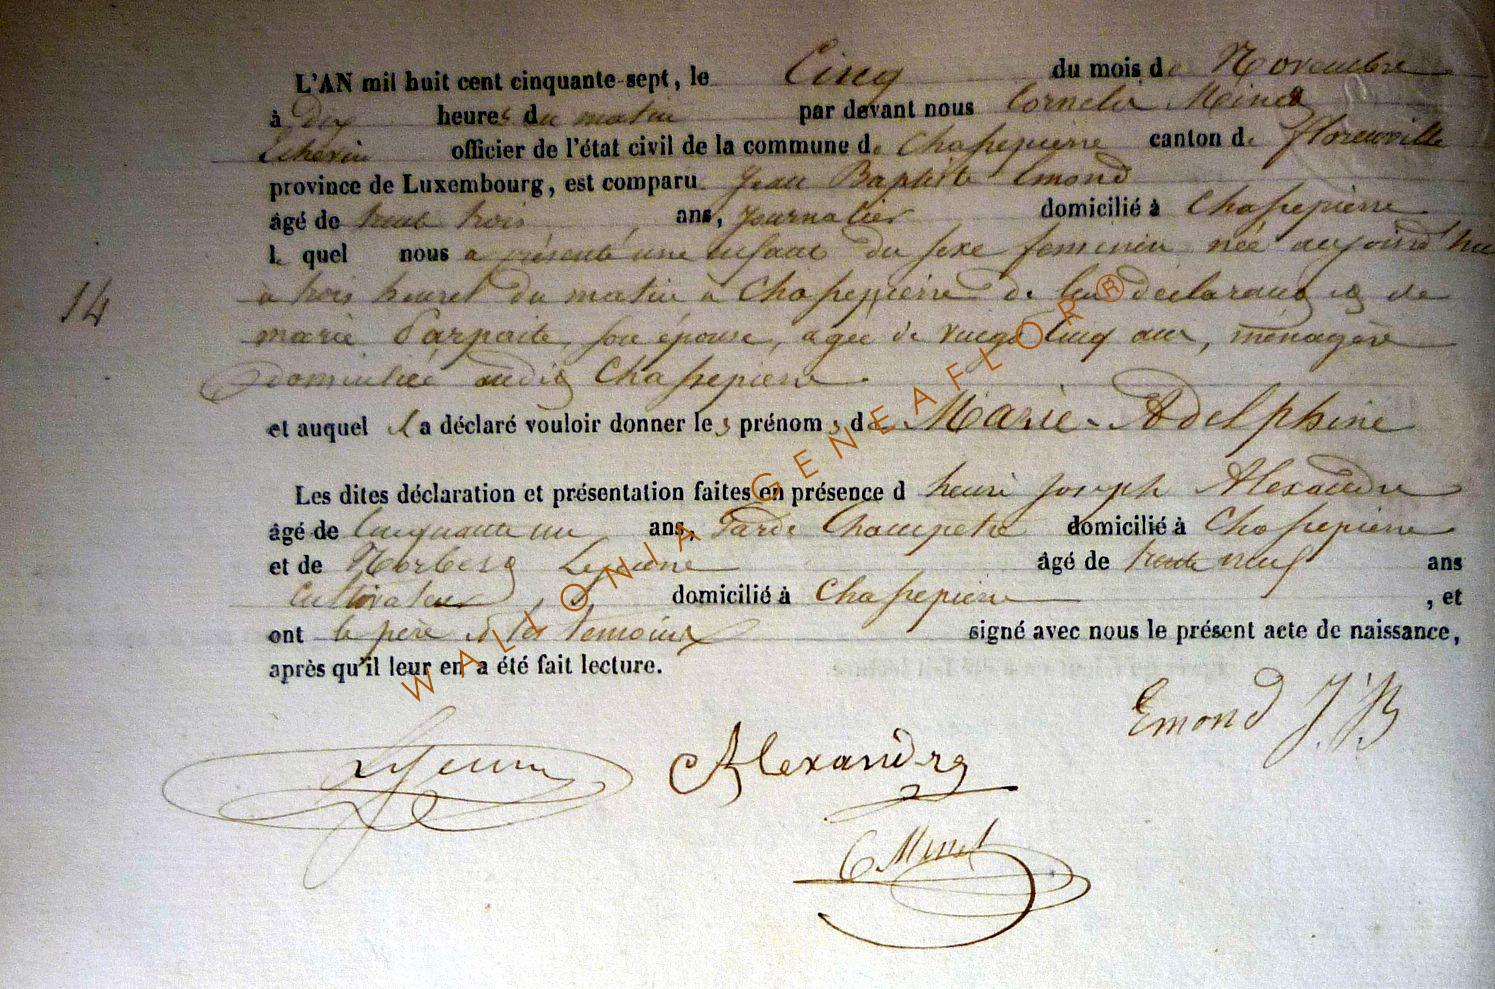 L'AN mil huit cent cinquante-sept, le Cinq du mois de Novembre
à Dix heures du matin par devant nous Cornelis Minet
Echevin officier de l'état civil de la commune de Chassepierre canton de florenville
province de Luxembourg, est comparu Jean Baptiste Emond
âgé de trente trois ans, journalier domicilié à Chassepierre
le quel nous a présenté une enfant du sexe feminin née aujourd'hui
à trois heures du matin à Chassepierre de lui déclarant et de
14
marie Parpaite, son épouse, agée de vingt cinq ans, ménagère
domiciliée audit Chassepierre
et auquel il a déclaré vouloir donner les prénoms de Marie-Adelphine
Les dites déclaration et présentation faites en présence d henri joseph Alexandre
âgé de Cinquante un ans, Garde Champetre domicilié à Chassepierre
et de Norbert Lejeune âgé de trente neuf ans
Cultivateur, domicilié à Chassepierre, et
ont le père et les temoins signé avec nous le présent acte de naissance,
après qu'il leur en a été fait lecture.
Emond J.B
Lejeune Alexandre
C Minet
WALLONIA GENEAFLOR®